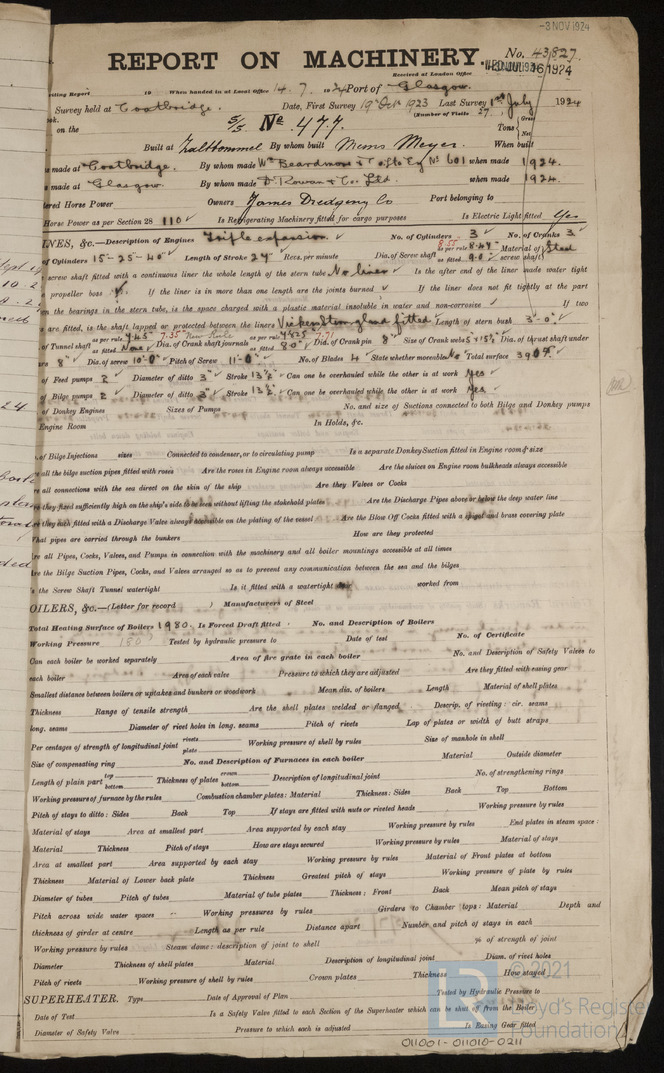 -3 NOV 1924
REPORT ON MACHINERY. No. 43827.
Received at London Office WED. JUL. 16 1924
iting Report 19 When handed in at Local Office 14. 7. 1924 Port of Glasgow.
Survey held at Coatbridge. Date, First Survey 19th Oct 1923 Last Survey 1st July 1924
(Number of Visits 27.)
on the S/S. No. 477. Tons Gross Net
Built at Zaltbommel By whom built Mems Meyer. When built
s made at Coatbridge. By whom made Wm Beardmore & Co Ltd Eng No 601 when made 1924.
s made at Glasgow. By whom made D. Rowan & Co. Ltd. when made 1924.
ered Horse Power Owners James Dredging Co Port belonging to
Horse Power as per Section 28 110 Is Refrigerating Machinery fitted for cargo purposes Is Electric Light fitted Yes
INES, &c.—Description of Engines Triple expansion. No. of Cylinders 3 No. of Cranks 3
of Cylinders 15-25-40 Length of Stroke 27 Revs. per minute Dia. of Screw shaft as per rule 8.55 8.48 as fitted 9.0 Material of screw shaft Steel
screw shaft fitted with a continuous liner the whole length of the stern tube No liner Is the after end of the liner made water tight
propeller boss If the liner is in more than one length are the joints burned If the liner does not fit tightly at the part
en the bearings in the stern tube, is the space charged with a plastic material insoluble in water and non-corrosive If two
s are fitted, is the shaft lapped or protected between the liners Vickers Stern gland fitted Length of stern bush 3'-0"
of Tunnel shaft as per rule 7.45 as fitted None 7.35 New Rule Dia. of Crank shaft journals as per rule 7.825 7.71 as fitted 8.0" Dia. of Crank pin 8" Size of Crank webs 5 x 15½ Dia. of thrust shaft under
rs 8" Dia. of screw 10'-0" Pitch of Screw 11'-0" No. of Blades 4 State whether moveable No Total surface 39 □ ft.
of Feed pumps 2 Diameter of ditto 3" Stroke 13½" Can one be overhauled while the other is at work Yes
of Bilge pumps 2 Diameter of ditto 3" Stroke 13½" Can one be overhauled while the other is at work Yes
of Donkey Engines Sizes of Pumps No. and size of Suctions connected to both Bilge and Donkey pumps
Engine Room In Holds, &c.
of Bilge Injections sizes Connected to condenser, or to circulating pump Is a separate Donkey Suction fitted in Engine room & size
re all the bilge suction pipes fitted with roses Are the roses in Engine room always accessible Are the sluices on Engine room bulkheads always accessible
re all connections with the sea direct on the skin of the ship Are they Valves or Cocks
re they fixed sufficiently high on the ship's side to be seen without lifting the stokehold plates Are the Discharge Pipes above or below the deep water line
re they each fitted with a Discharge Valve always accessible on the plating of the vessel Are the Blow Off Cocks fitted with a spigot and brass covering plate
What pipes are carried through the bunkers How are they protected
re all Pipes, Cocks, Valves, and Pumps in connection with the machinery and all boiler mountings accessible at all times
re the Bilge Suction Pipes, Cocks, and Valves arranged so as to prevent any communication between the sea and the bilges
s the Screw Shaft Tunnel watertight Is it fitted with a watertight worked from
OILERS, &c.—(Letter for record ) Manufacturers of Steel
Total Heating Surface of Boilers 1980. Is Forced Draft fitted No. and Description of Boilers
Working Pressure 180 Tested by hydraulic pressure to Date of test No. of Certificate
Can each boiler be worked separately Area of fire grate in each boiler No. and Description of Safety Valves to
each boiler Area of each valve Pressure to which they are adjusted Are they fitted with easing gear
Smallest distance between boilers or uptakes and bunkers or woodwork Mean dia. of boilers Length Material of shell plates
Thickness Range of tensile strength Are the shell plates welded or flanged Descrip. of riveting: cir. seams
long. seams Diameter of rivet holes in long. seams Pitch of rivets Lap of plates or width of butt straps
Per centages of strength of longitudinal joint rivets plate Working pressure of shell by rules Size of manhole in shell
Size of compensating ring No. and Description of Furnaces in each boiler Material Outside diameter
Length of plain part top bottom Thickness of plates crown bottom Description of longitudinal joint No. of strengthening rings
Working pressure of furnace by the rules Combustion chamber plates: Material Thickness: Sides Back Top Bottom
Pitch of stays to ditto: Sides Back Top If stays are fitted with nuts or riveted heads Working pressure by rules
Material of stays Area at smallest part Area supported by each stay Working pressure by rules End plates in steam space:
Material Thickness Pitch of stays How are stays secured Working pressure by rules Material of stays
Area at smallest part Area supported by each stay Working pressure by rules Material of Front plates at bottom
Thickness Material of Lower back plate Thickness Greatest pitch of stays Working pressure of plate by rules
Diameter of tubes Pitch of tubes Material of tube plates Thickness: Front Back Mean pitch of stays
Pitch across wide water spaces Working pressures by rules Girders to Chamber tops: Material Depth and
thickness of girder at centre Length as per rule Distance apart Number and pitch of stays in each
Working pressure by rules Steam dome: description of joint to shell % of strength of joint
Diameter Thickness of shell plates Material Description of longitudinal joint Diam. of rivet holes
Pitch of rivets Working pressure of shell by rules Crown plates Thickness How stayed
SUPERHEATER. Type Date of Approval of Plan Tested by Hydraulic Pressure to
Date of Test Is a Safety Valve fitted to each Section of the Superheater which can be shut off from the Boiler
Diameter of Safety Valve Pressure to which each is adjusted Is Easing Gear fitted
© 2021
Lloyd's Register
Foundation
011001-011010-0211